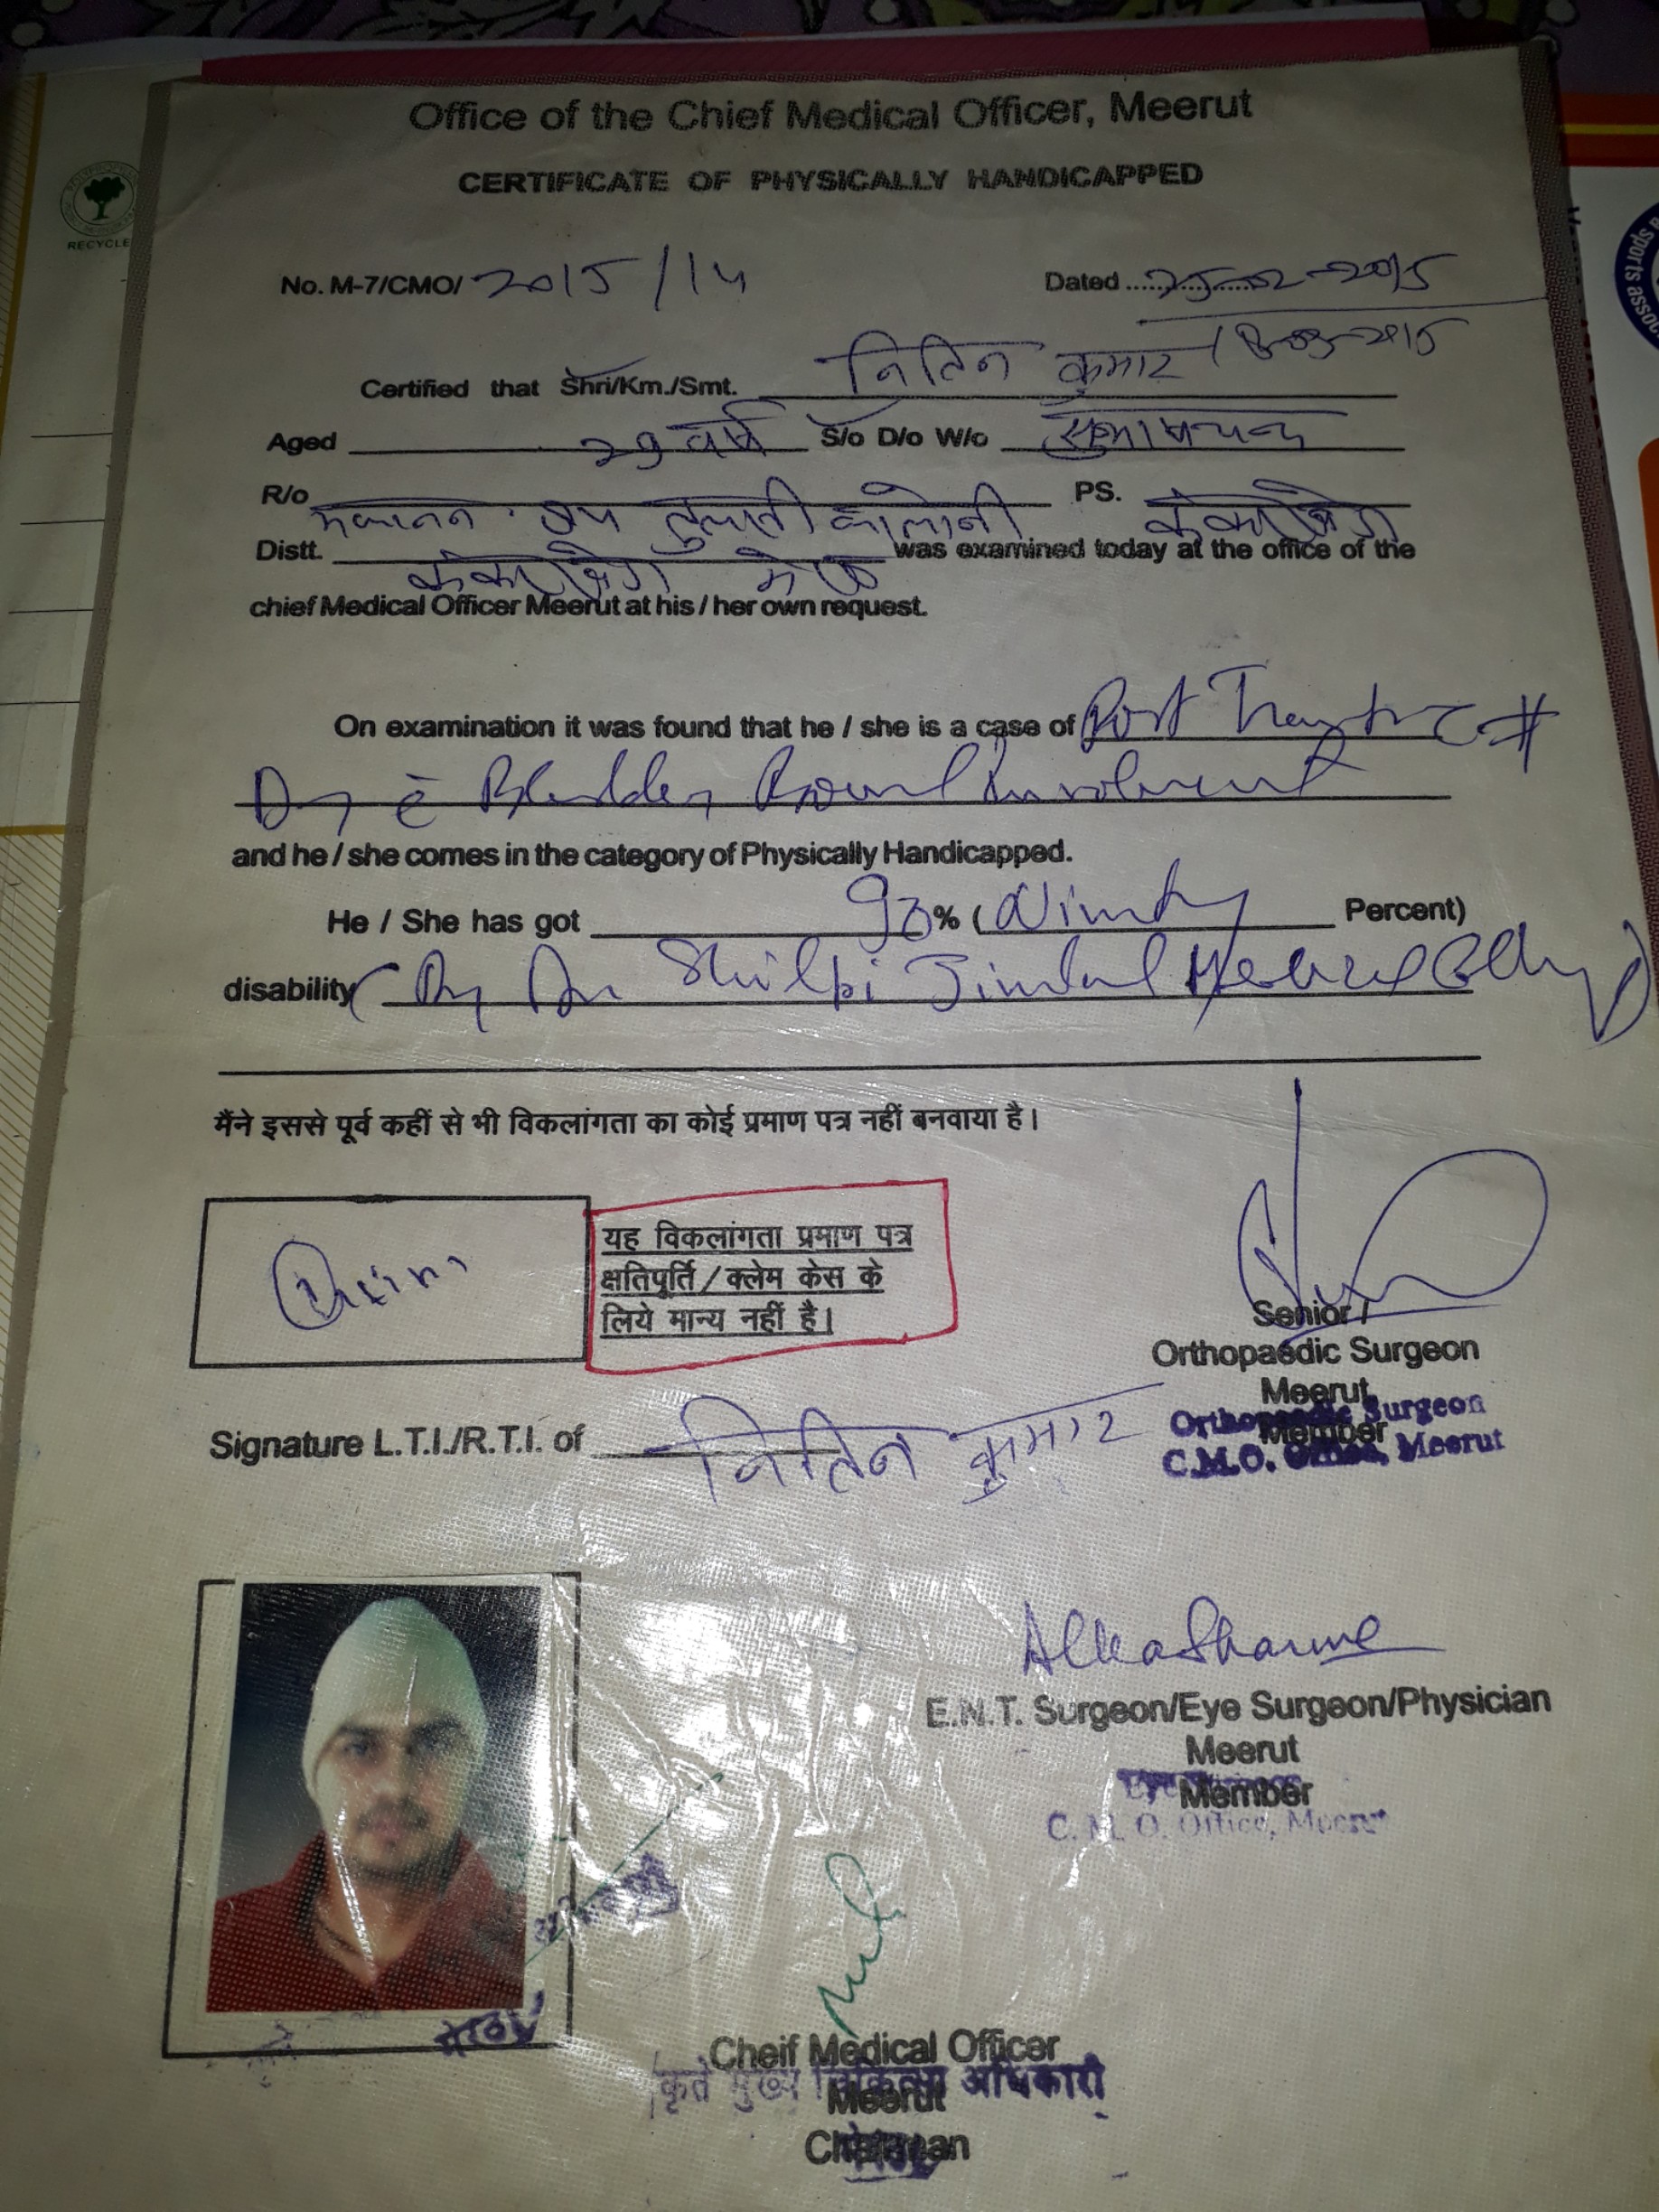 Office of the Chief Medical Officer, Meerut
CERTIFICATE OF PHYSICALLY HANDICAPPED
RECYCLE
No. M-7/CMO/ 2015/14 Dated 25-02-2015
2015
Certified that Shri/Km./Smt. नितिन कुमार
Aged 29 वर्ष S/o D/o W/o
R/o कालोनी PS.
Distt. was examined today at the office of the
chief Medical Officer Meerut at his / her own request.
On examination it was found that he / she is a case of Post #
Bladder Bowel Involvement
and he / she comes in the category of Physically Handicapped.
He / She has got 90% (Ninety Percent)
disability (By Dr Shilpi Jindal
मैंने इससे पूर्व कहीं से भी विकलांगता का कोई प्रमाण पत्र नहीं बनवाया है।
यह विकलांगता प्रमाण पत्र
क्षतिपूर्ति/क्लेम केस के
लिये मान्य नहीं है।
Senior /
Orthopaedic Surgeon
Meerut
Member
Orthopaedic Surgeon
C.M.O. Office, Meerut
Signature L.T.I./R.T.I. of नितिन कुमार
Alka Sharma
E.N.T. Surgeon/Eye Surgeon/Physician
Meerut
Member
C. M. O. Office, Meerut
मेरठ
Cheif Medical Officer
कृते मुख्य चिकित्सा अधिकारी
Meerut
Chairman
a sports asso